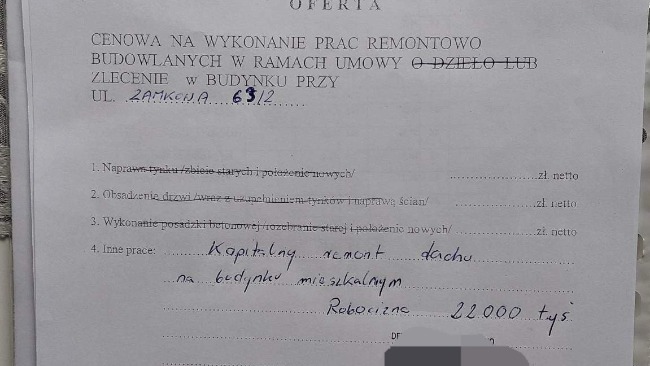 OFERTA
CENOWA NA WYKONANIE PRAC REMONTOWO
BUDOWLANYCH W RAMACH UMOWY O DZIEŁO LUB
ZLECENIE w BUDYNKU PRZY
UL. ZAMKOWA 63/2
1. Naprawa tynku /zbicie starych i położenie nowych/ zł. netto
2. Obsadzenie drzwi /wraz z uzupełnieniem tynków i naprawą ścian/ zł. netto
3. Wykonanie posadzki betonowej /rozebranie starej i położenie nowych/ zł. netto
4. Inne prace: Kapitalny remont dachu
na budynku mieszkalnym
Robocizna 22000 tyś